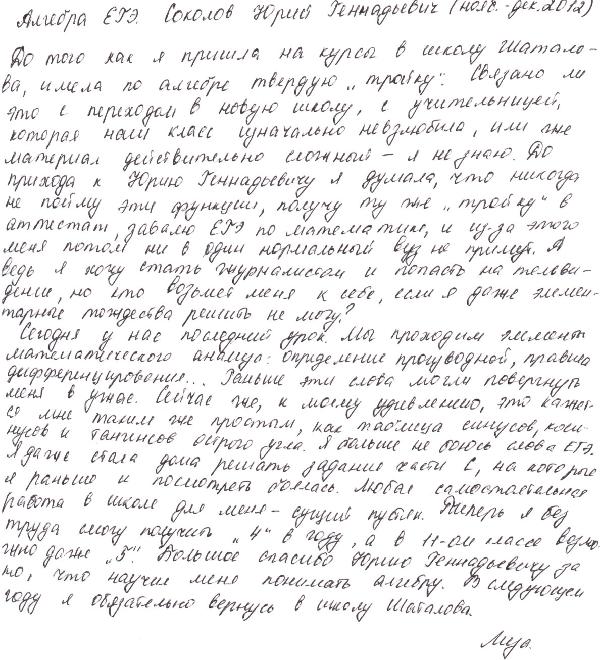 Алгебра ЕГЭ. Соколов Юрий Геннадьевич (нояб.-дек.2012)
До того как я пришла на курсы в школу Шатало-
ва, имела по алгебре твердую „тройку“. Связано ли
это с переходом в новую школу, с учительницей,
которая наш класс изначально невзлюбила, или же
материал действительно сложный – я не знаю. До
прихода к Юрию Геннадьевичу я думала, что никогда
не пойму эти функции, получу ту же „тройку“ в
аттестат, завалю ЕГЭ по математике, и из-за этого
меня потом ни в один нормальный вуз не примут. А
ведь я хочу стать журналистом и попасть на телеви-
дение, но кто возьмет меня к себе, если я даже элемен-
тарные тождества решить не могу?
Сегодня у нас последний урок. Мы проходим элементы
математического анализа: определение производной, правила
дифференцирования... Раньше эти слова могли повергнуть
меня в ужас. Сейчас же, к моему удивлению, это кажет-
ся мне таким же простым, как таблица синусов, коси-
нусов и тангенсов острого угла. Я больше не боюсь слова ЕГЭ.
Я даже стала дома решать задание части С, на которые
я раньше и посмотреть боялась. Любая самостоятельная
работа в школе для меня – сущий пустяк. Теперь я без
труда смогу получить „4“ в году, а в 11-ом классе возмо-
жно даже „5“. Большое спасибо Юрию Геннадьевичу за
то, что научил меня понимать алгебру. В следующем
году я обязательно вернусь в школу Шаталова.
Лиза.